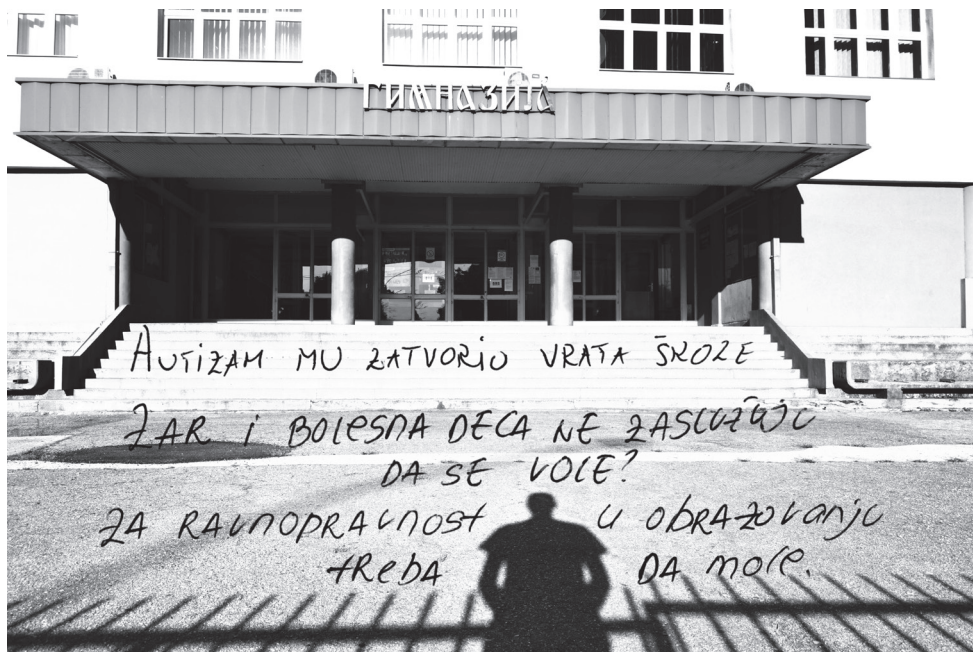 ГИМНАЗИЈА
AUTIZAM MU ZATVORIO VRATA ŠKOLE
ZAR i BOLESNA DECA NE ZASLUŽUJU
DA SE VOLE?
ZA RAVNOPRAVNOST U ObRAZOVANJU
tReбA DA MOLE.